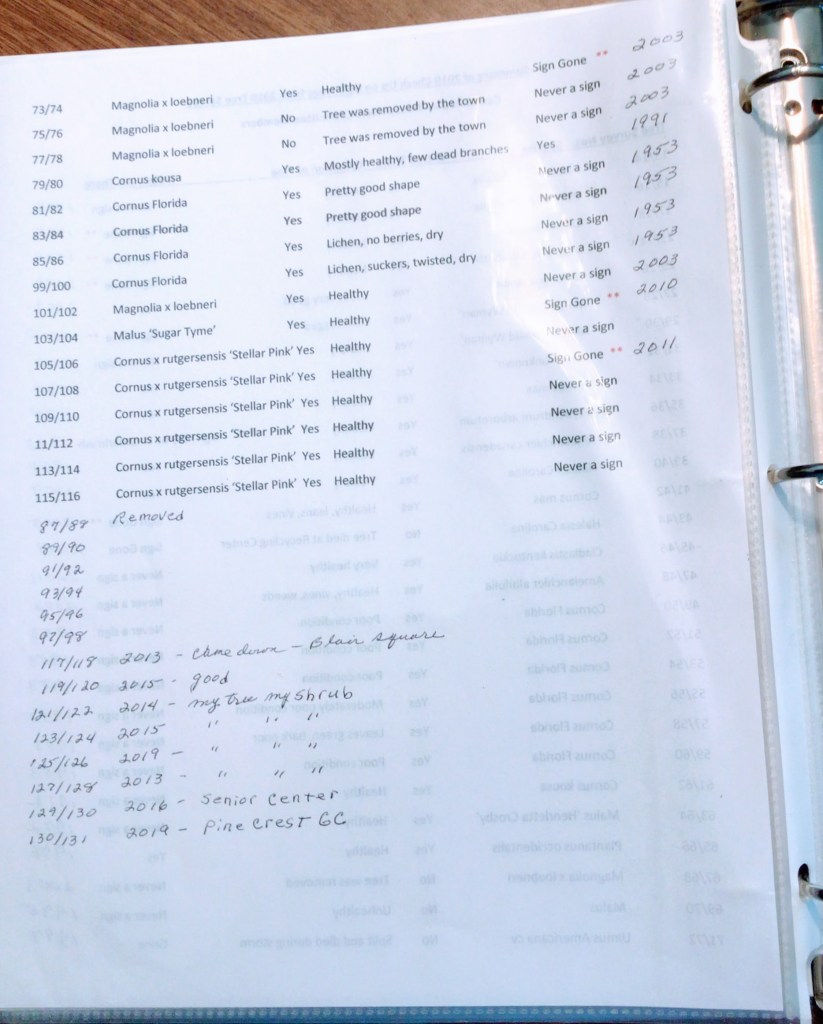 73/74 Magnolia x loebneri Yes Healthy Sign Gone ** 2003
75/76 Magnolia x loebneri No Tree was removed by the town Never a sign 2003
77/78 Magnolia x loebneri No Tree was removed by the town Never a sign 2003
79/80 Cornus kousa Yes Mostly healthy, few dead branches Yes 1991
81/82 Cornus Florida Yes Pretty good shape Never a sign 1953
83/84 Cornus Florida Yes Pretty good shape Never a sign 1953
85/86 Cornus Florida Yes Lichen, no berries, dry Never a sign 1953
99/100 Cornus Florida Yes Lichen, suckers, twisted, dry Never a sign 1953
101/102 Magnolia x loebneri Yes Healthy Never a sign 2003
103/104 Malus 'Sugar Tyme' Yes Healthy Sign Gone ** 2010
105/106 Cornus x rutgersensis 'Stellar Pink' Yes Healthy Never a sign
107/108 Cornus x rutgersensis 'Stellar Pink' Yes Healthy Sign Gone ** 2011
109/110 Cornus x rutgersensis 'Stellar Pink' Yes Healthy Never a sign
11/112 Cornus x rutgersensis 'Stellar Pink' Yes Healthy Never a sign
113/114 Cornus x rutgersensis 'Stellar Pink' Yes Healthy Never a sign
115/116 Cornus x rutgersensis 'Stellar Pink' Yes Healthy Never a sign
87/88 Removed
89/90
91/92
93/94
95/96
97/98
117/118 2013 - came down - Blair Square
119/120 2015 - good
121/122 2014 - my tree my shrub
123/124 2015 " " "
125/126 2019 - " " "
127/128 2013 - " " "
129/130 2016 - Senior Center
130/131 2019 - Pine Crest GC